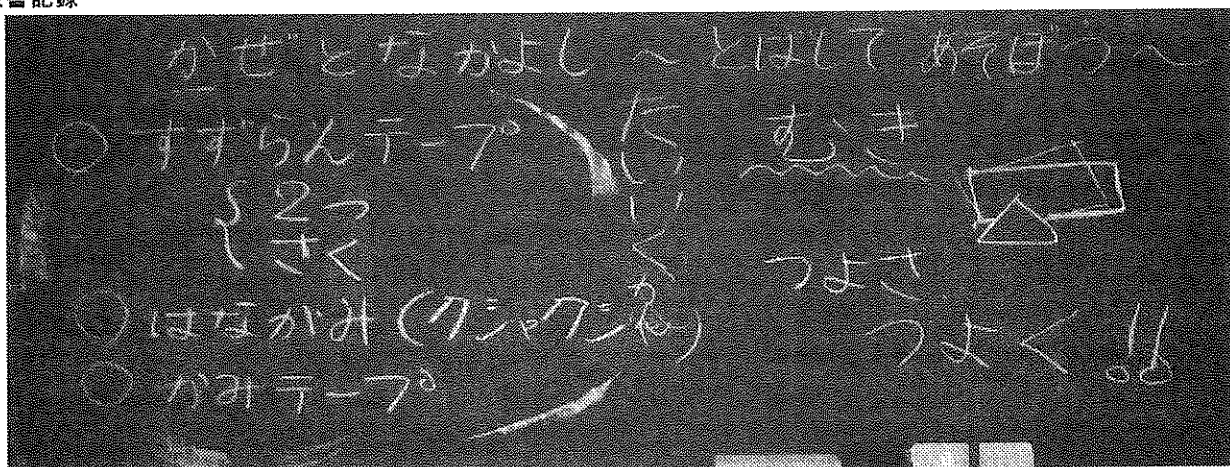 板書記録
かぜとなかよし ～とばして あそぼう～
○ すずらんテープ
{ 2つ
さく
○ はながみ (グシャグシャ)
○ かみテープ
むき
つよさ
つよく!!